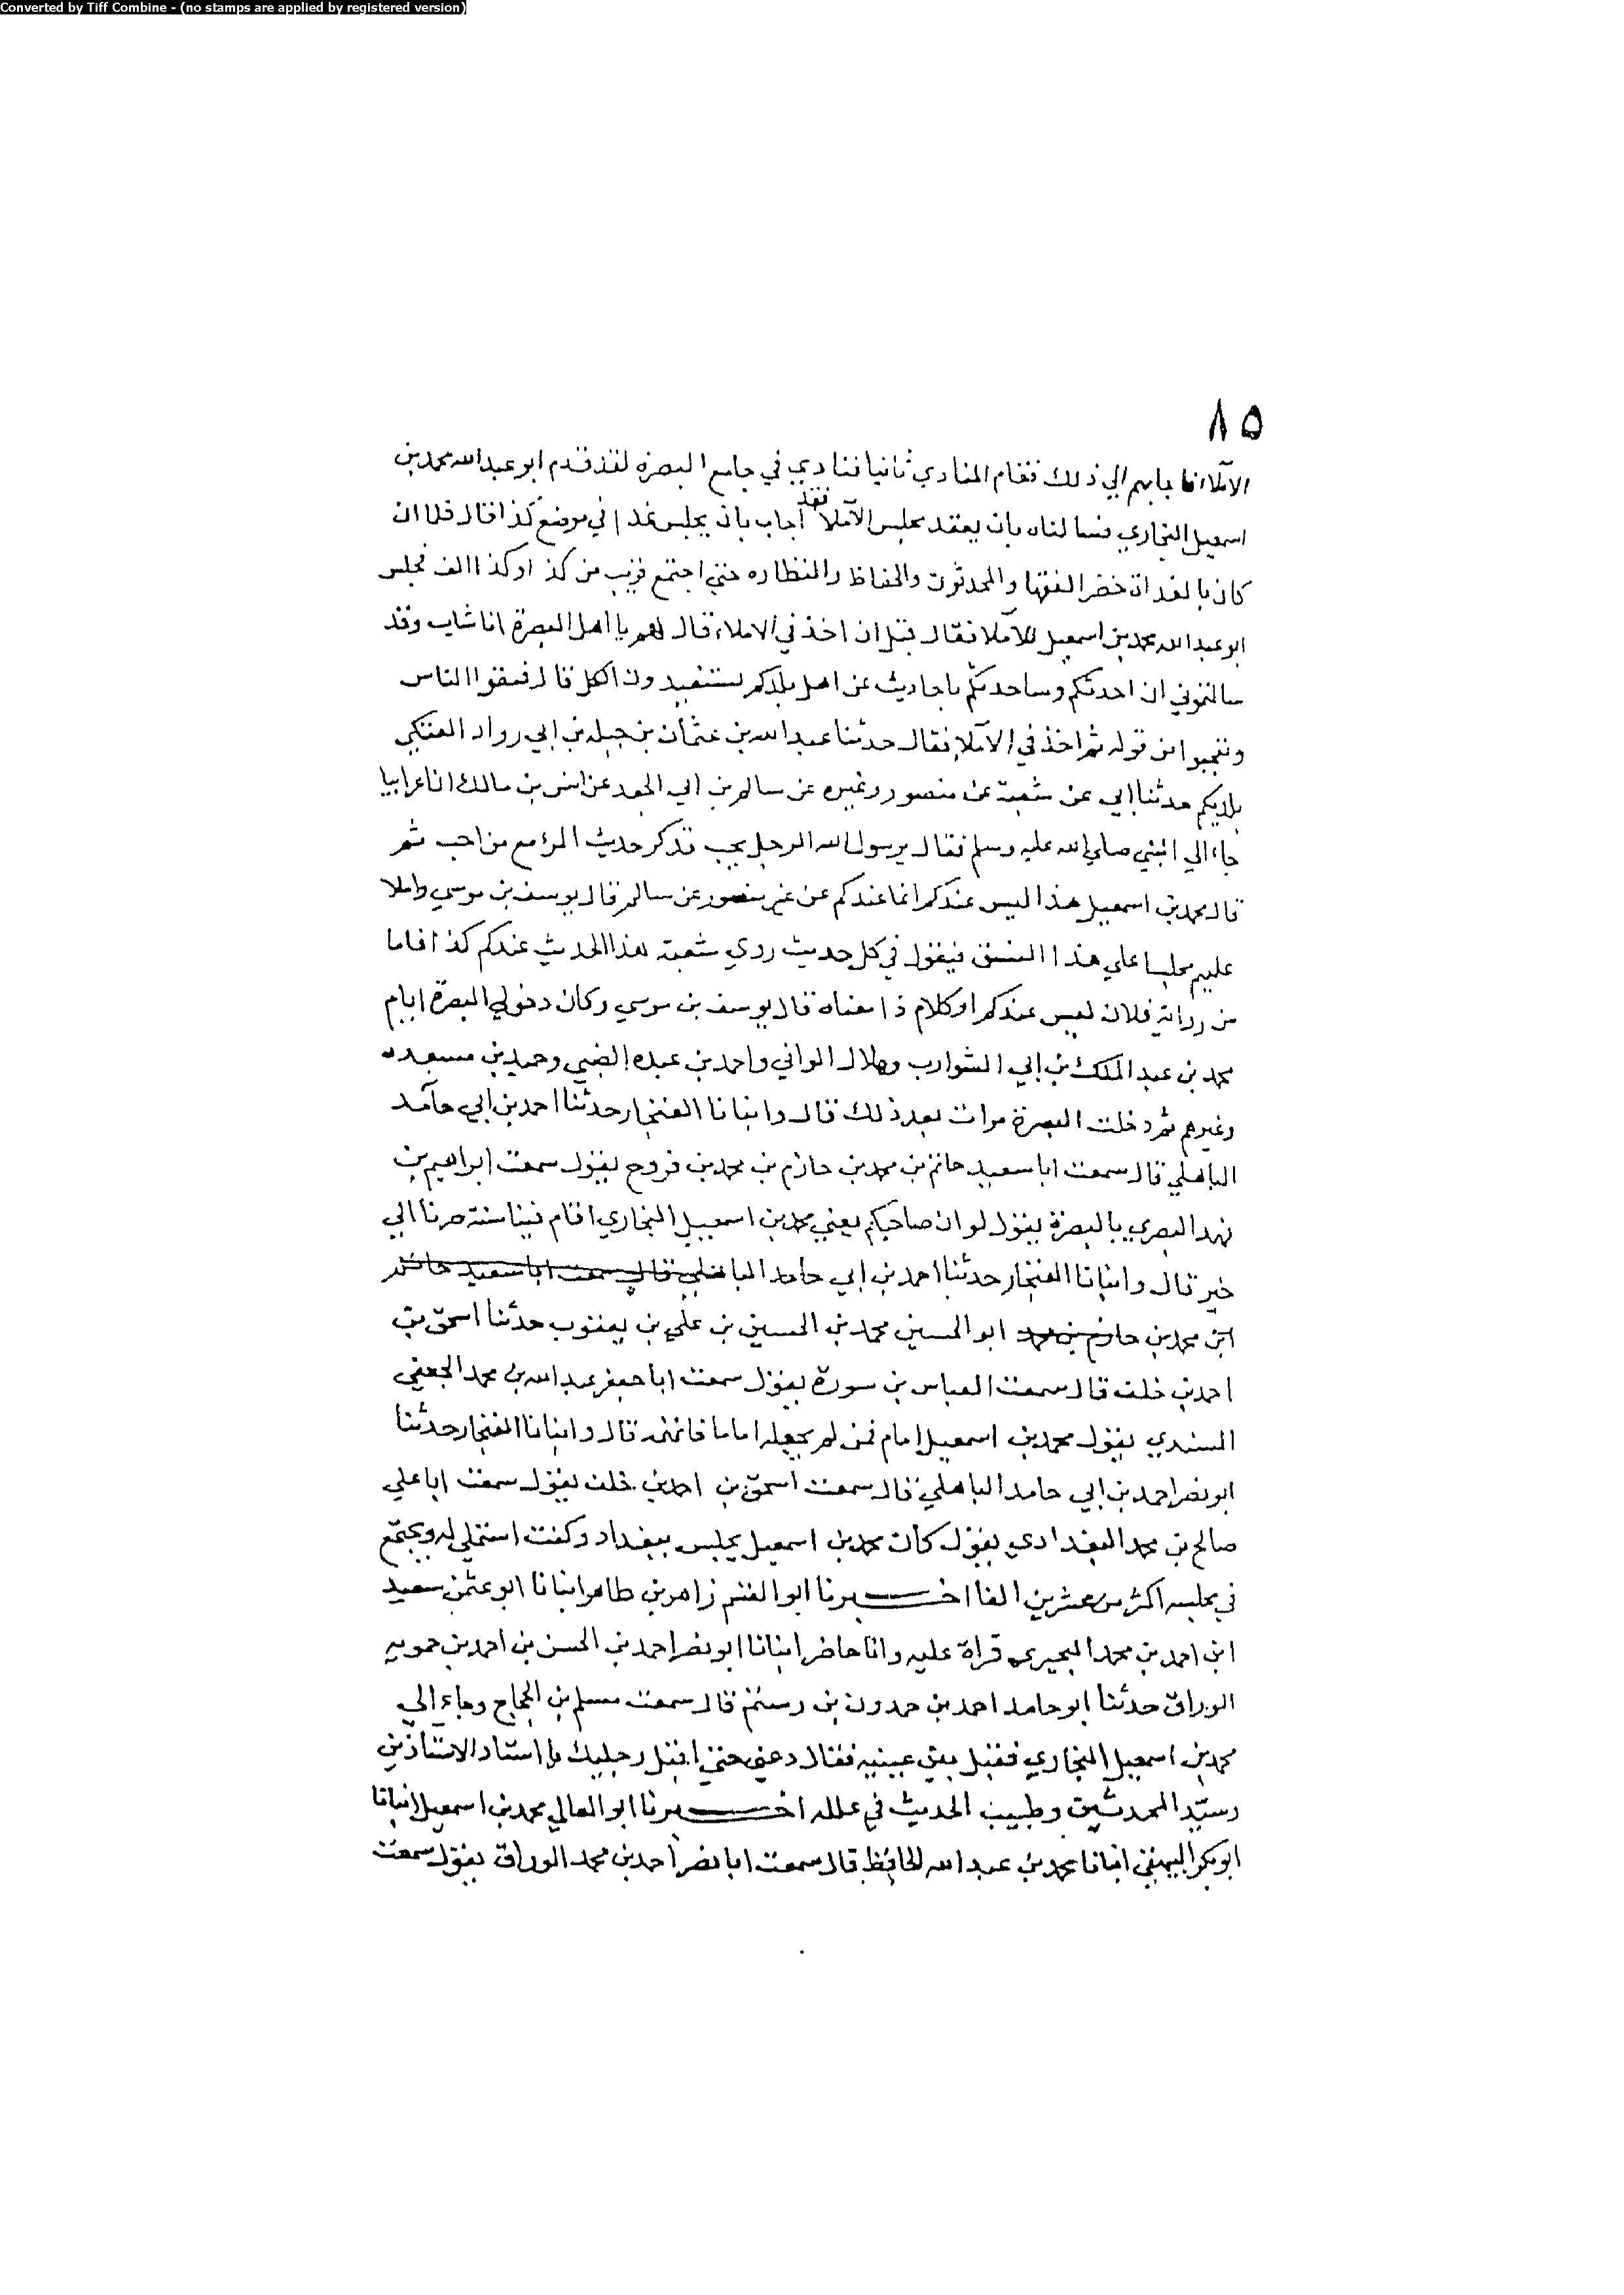 Converted by Tiff Combine - (no stamps are applied by registered version)
٨٥
الاملاء فاجابهم الي ذلك فقام المنادي ثانيا فنادي في جامع البصره لقد قدم ابو عبد الله محمد بن
اسمعيل البخاري فسالناه بان يعقد مجلس الاملا فقد اجاب بان يجلس غدا في موضع كذا قال فلما ان
كان بالغداة حضر الفقها والمحدثون والحفاظ والنظاره حتي اجتمع قريب من كذا وكذا الف فجلس
ابو عبد الله محمد بن اسمعيل للاملا فقال قبل ان اخذ في الاملاء قال لهم يا اهل البصرة انا شاب وقد
سالتموني ان احدثكم وساحدثكم باحاديث عن اهل بلدكم تستفيدون الكل قال فبقوا الناس
وتعجبوا من قوله ثم اخذ في الاملا فقال حدثنا عبد الله بن عثمان بن جبله بن ابي رواد العتكي
بلديكم حدثنا ابي عن شعبة عن منصور وغيره عن سالم بن ابي الجعد عن انس بن مالك ان اعرابيا
جاء الي النبي صلي الله عليه وسلم فقال يرسول الله الرجل يحب فذكر حديث المرء مع من احب ثم
قال محمد بن اسمعيل هذا ليس عندكم انما عندكم عن غير منصور عن سالم قال يوسف بن موسي واملا
عليهم مجلسا علي هذا النسق فيقول في كل حديث روي شعبة هذا الحديث عندكم كذا فاما
من رواية فلان ليس عندكم او كلام ذا معناه قال يوسف بن موسي وكان دخولي البصرة ايام
محمد بن عبد الملك بن ابي الشوارب وهلال الراني واحمد بن عبده الضبي وحميد بن مسعده
وغيرهم ثم دخلت البصرة مرات بعد ذلك قال وانبانا الغنجار حدثنا احمد بن ابي حامد
الباهلي قال سمعت ابا سعيد حاتم بن محمد بن حازم بن محمد بن فروح يقول سمعت ابراهيم بن
نهد البصري بالبصرة يقول لو ان صاحبكم يعني محمد بن اسمعيل البخاري اقام فينا سنة صرنا الي
خير قال وانبانا الغنجار حدثنا احمد بن ابي حامد الباهلي قال سمعت ابا سعيد حاتم
ابن محمد بن حازم بن محمد ابو الحسين محمد بن الحسين بن علي بن يعقوب حدثنا اسحق بن
احمد بن خلف قال سمعت العباس بن سورة يقول سمعت ابا جعفر عبد الله بن محمد الجعفي
المسندي يقول محمد بن اسمعيل امام فمن لم يجعله اماما فاتهمه قال وانبانا الغنجار حدثنا
ابو نصر احمد بن ابي حامد الباهلي قال سمعت اسحق بن احمد بن خلف يقول سمعت ابا علي
صالح بن محمد البغدادي يقول كان محمد بن اسمعيل يجلس ببغداد وكنت استملي له ويجتمع
في مجلسه اكثر من عشرين الفا اخبرنا ابو القسم زاهر بن طاهر انبانا ابو عثمن سعيد
ابن احمد بن محمد البحيري قراة عليه وانا حاضر انبانا ابو نصر احمد بن الحسن بن احمد بن حمويه
الوراق حدثنا ابو حامد احمد بن حمدون بن رستم قال سمعت مسلم بن الحجاج وجاء الي
محمد بن اسمعيل البخاري فقبل بين عينيه فقال دعني حتي اقبل رجليك يا استاد الاستاذين
وسيد المحدثين وطبيب الحديث في علله اخبرنا ابو المعالي محمد بن اسمعيل انبانا
ابو بكر البيهقي انبانا محمد بن عبد الله الحافظ قال سمعت ابا نصر احمد بن محمد الوراق يقول سمعت